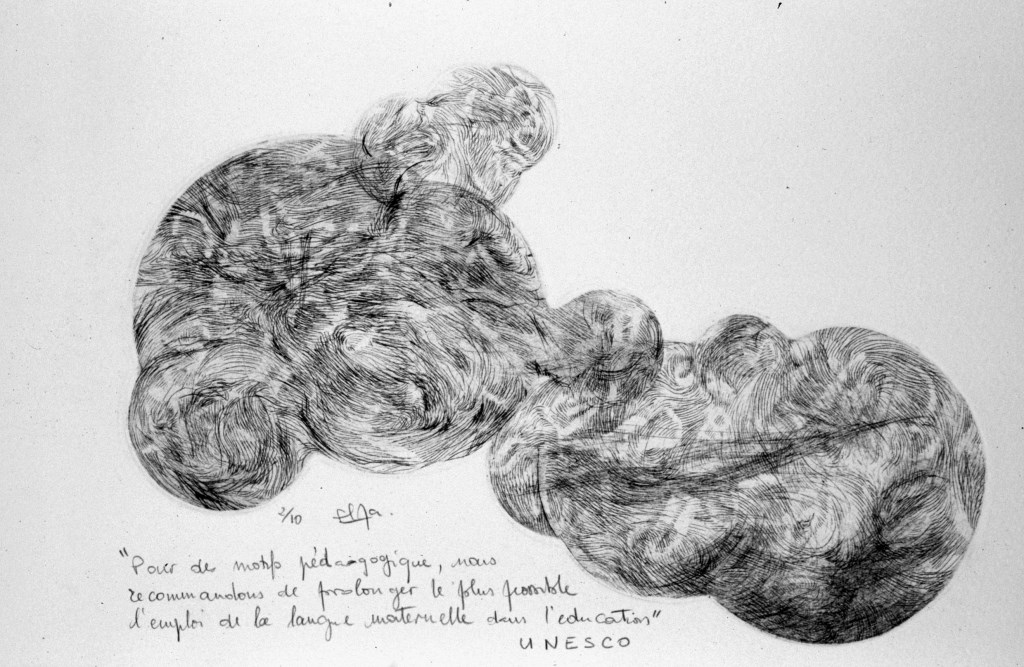 2/10
"Pour des motifs pédagogique, nous
recommandons de prolonger le plus possible
l'emploi de la langue maternelle dans l'education"
UNESCO